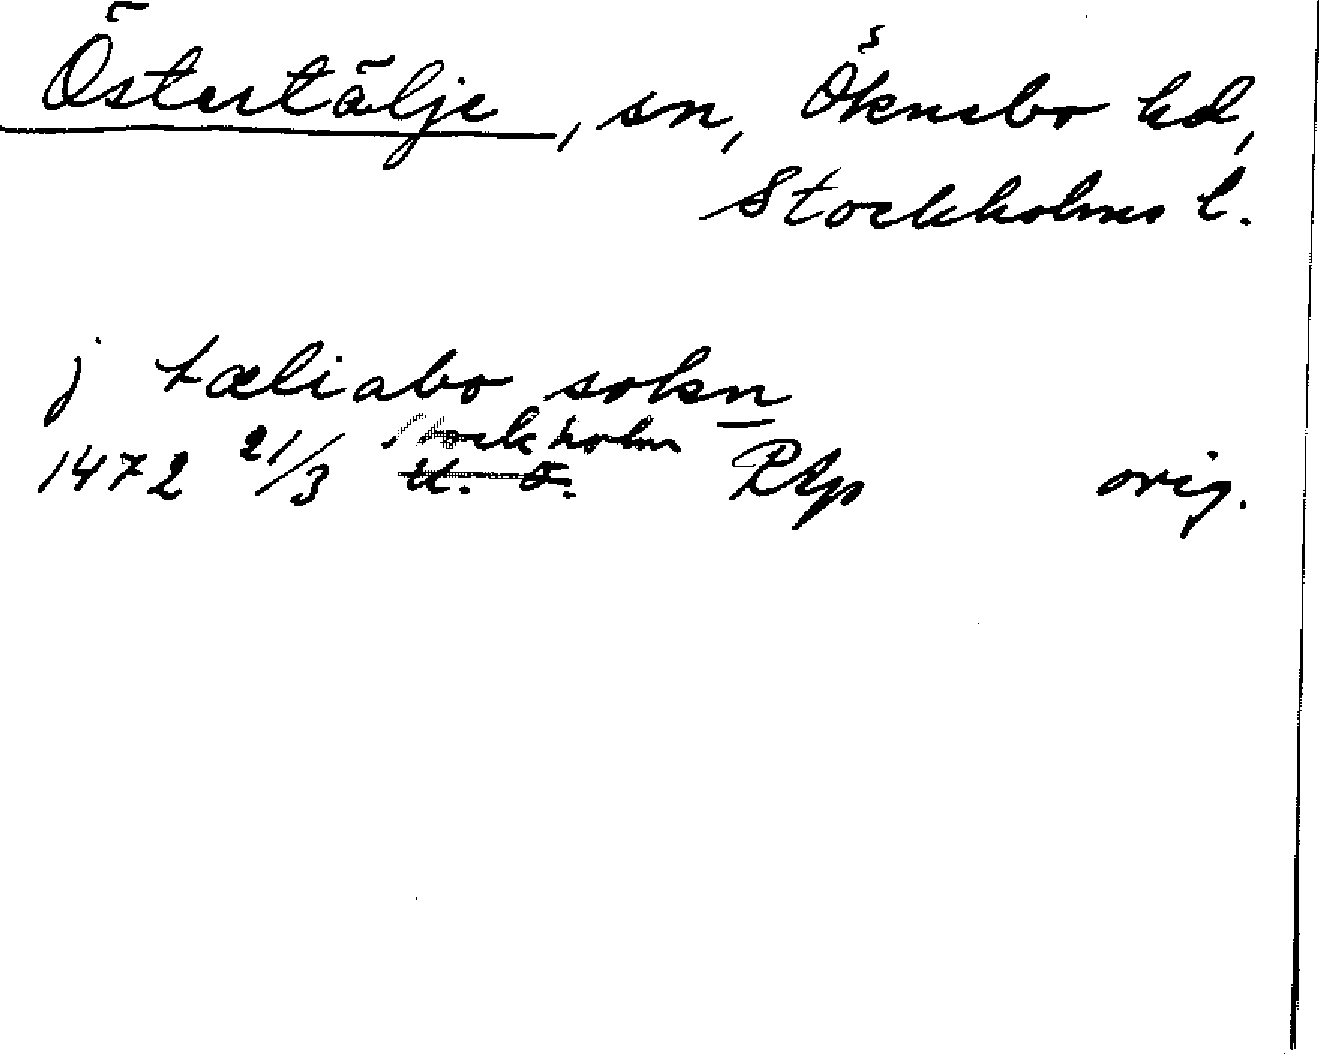 Östertälje, sn, Öknebo hd,
Stockholms l.
j tæliabo sokn
Stockholm
1472 21/3 U. O. RAp orig.